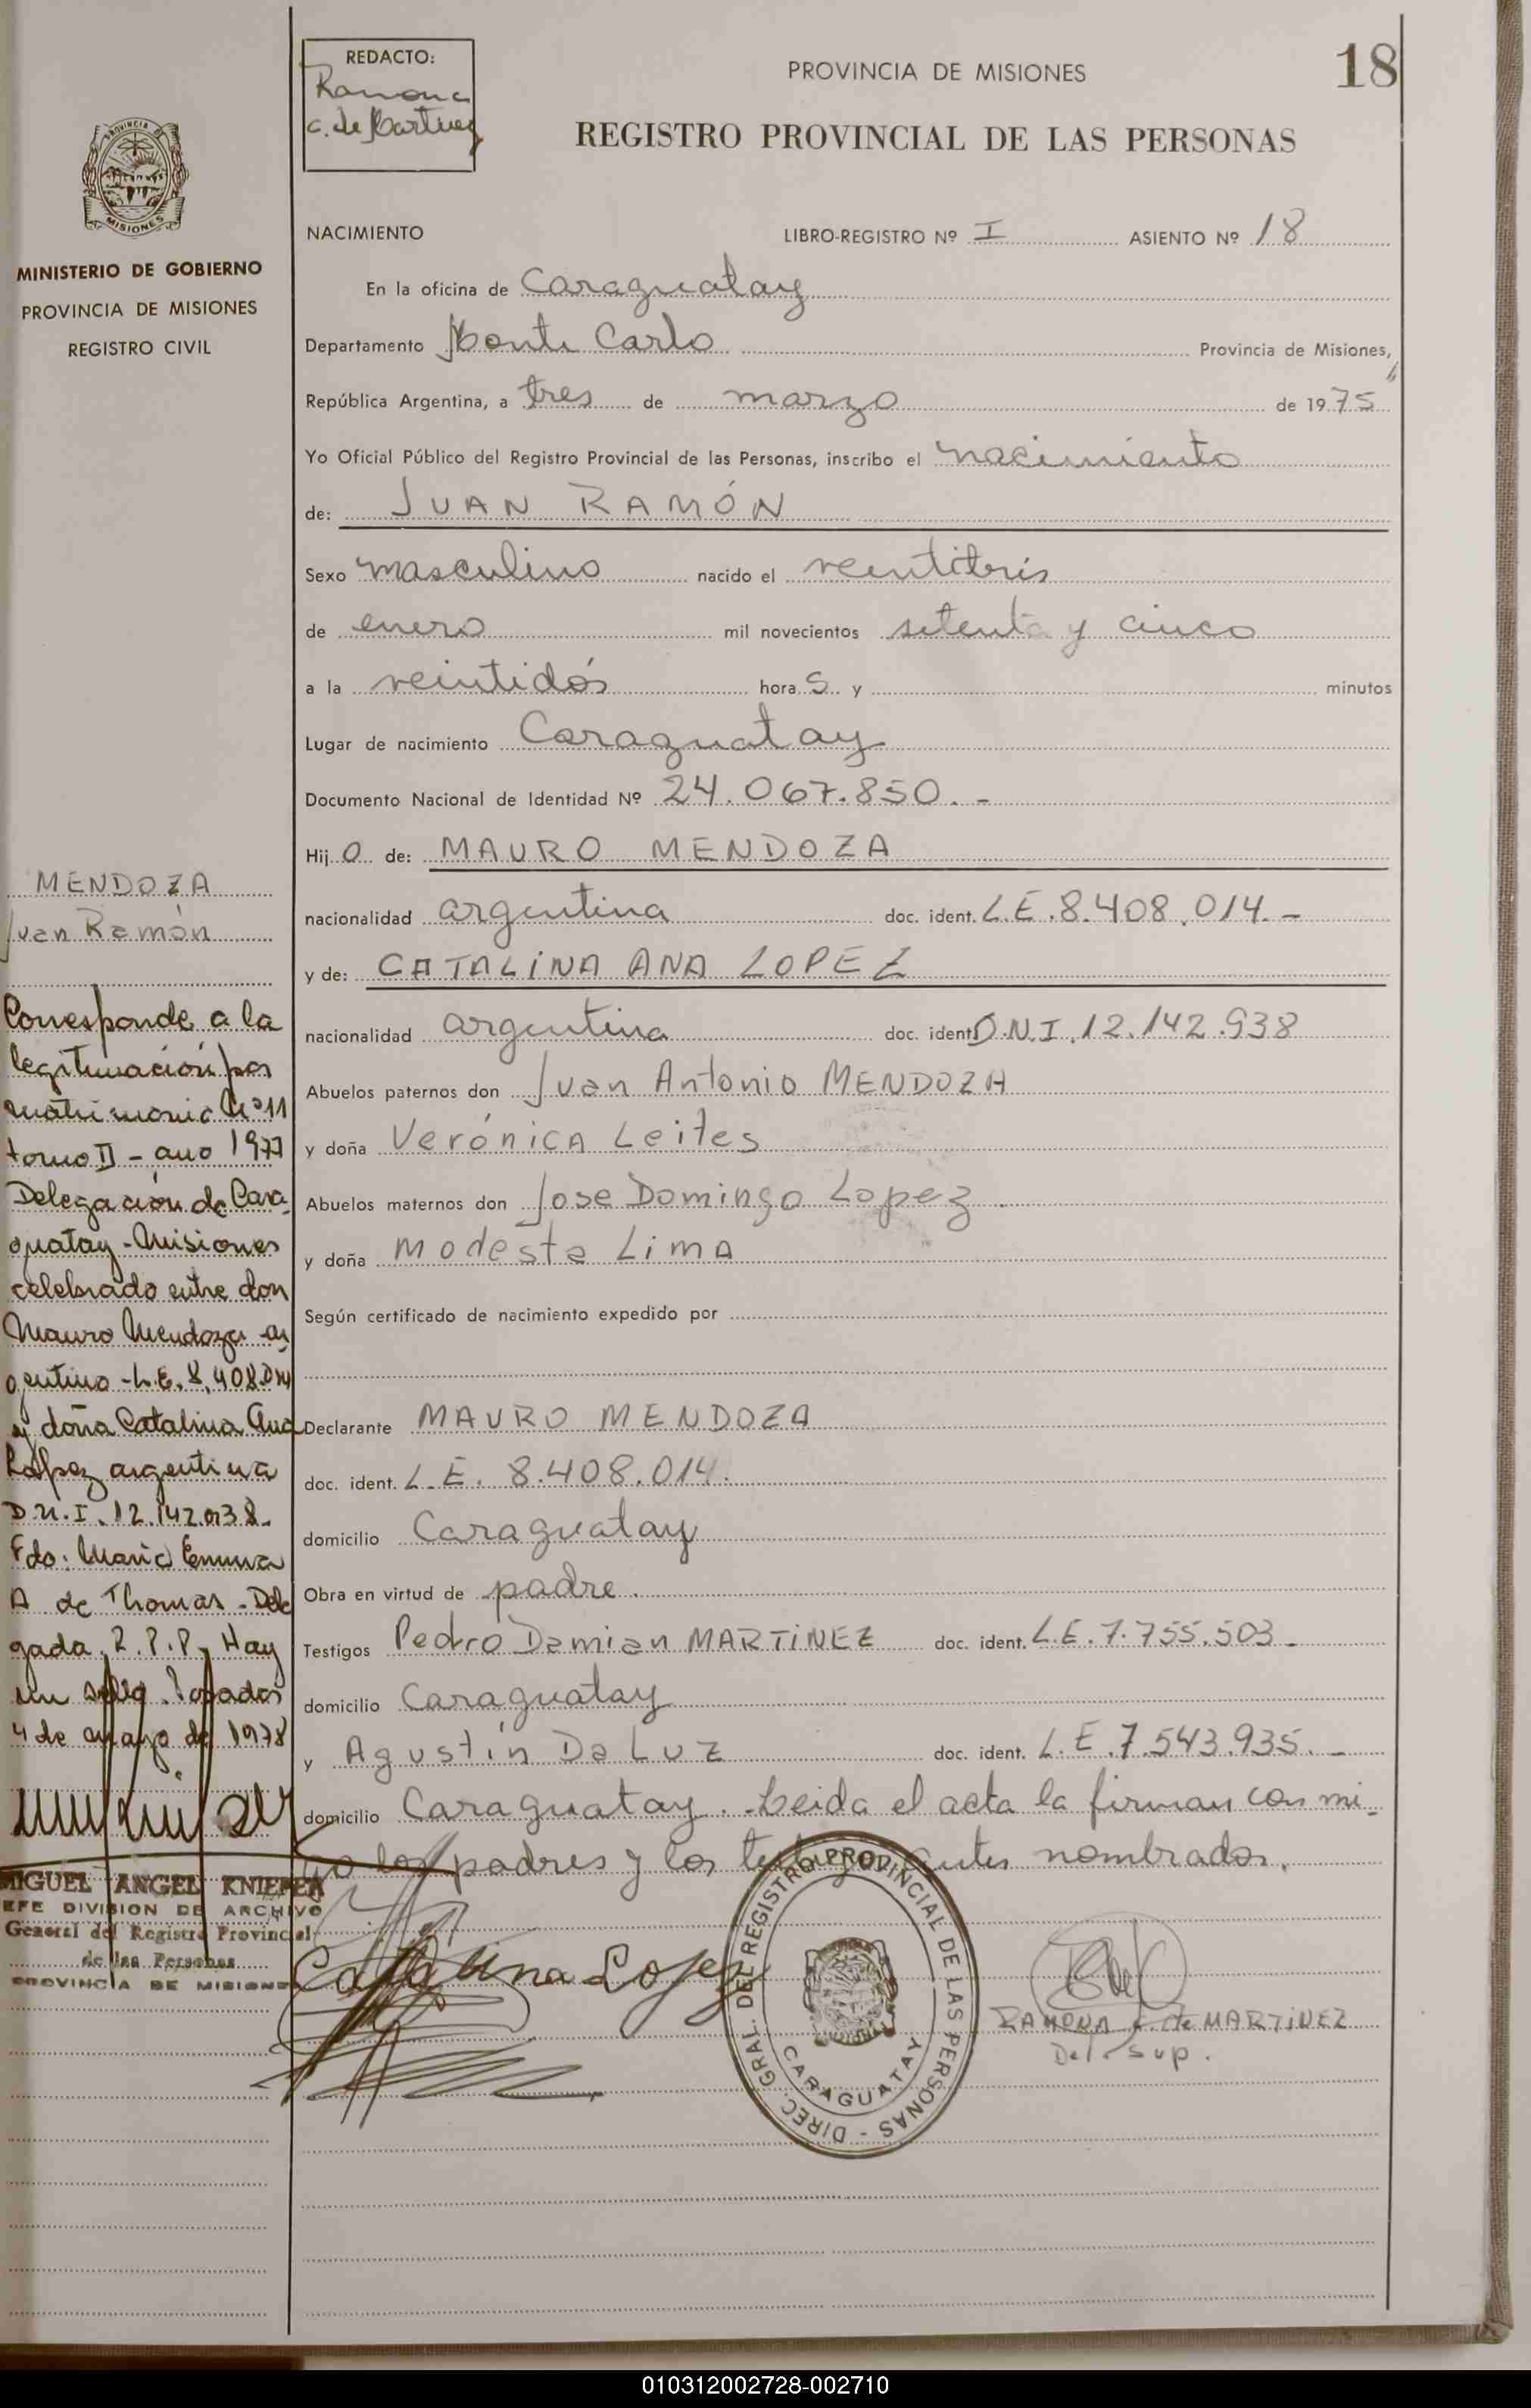 REDACTO:
Ramona
c. de Martinez
PROVINCIA DE MISIONES
18
REGISTRO PROVINCIAL DE LAS PERSONAS
PROVINCIA
MISIONES
MINISTERIO DE GOBIERNO
PROVINCIA DE MISIONES
REGISTRO CIVIL
NACIMIENTO LIBRO-REGISTRO Nº I ASIENTO Nº 18
En la oficina de Caraguatay
Departamento Monte Carlo Provincia de Misiones,
República Argentina, a tres de marzo de 1975
Yo Oficial Público del Registro Provincial de las Personas, inscribo el nacimiento
de: JUAN RAMÓN
Sexo masculino nacido el veintitrés
de enero mil novecientos setenta y cinco
a la veintidós hora s y minutos
Lugar de nacimiento Caraguatay
Documento Nacional de Identidad Nº 24.067.850.-
Hij o de: MAURO MENDOZA
nacionalidad argentina doc. ident. L.E.8.408.014.-
y de: CATALINA ANA LOPEZ
nacionalidad argentina doc. ident. D.N.I.12.142.938
Abuelos paternos don Juan Antonio MENDOZA
y doña Verónica Leites
Abuelos maternos don Jose Domingo Lopez
y doña Modesta Lima
Según certificado de nacimiento expedido por
Declarante MAURO MENDOZA
doc. ident. L.E. 8.408.014.
domicilio Caraguatay
Obra en virtud de padre.
Testigos Pedro Damian MARTINEZ doc. ident. L.E.7.755.503.-
domicilio Caraguatay
y Agustín Da Luz doc. ident. L.E.7.543.935.-
domicilio Caraguatay. Leida el acta la firman con mi-
go los padres y los testigos antes nombrados.
MENDOZA
Juan Ramón
Corresponde a la
legitimación por
matrimonio Nº11
tomo II - año 1977
Delegación de Cara-
guatay - Misiones
celebrado entre don
Mauro Mendoza ar
gentino - L.E. 8.408.014
y doña Catalina Ana
López argentina
D.N.I. 12.142.938-
Fdo: María Emma
A de Thomas - Dele
gada R.P.P. Hay
un sello. Posadas
4 de mayo de 1978
MIGUEL ANGEL KNIEPER
JEFE DIVISION DE ARCHIVO
General del Registro Provincial
de las Personas
PROVINCIA DE MISIONES
Catalina Lopez
DIREC. GRAL. DEL REGISTRO PROVINCIAL DE LAS PERSONAS -
CARAGUATAY
RAMONA c. de MARTINEZ
Del. Sup.
010312002728-002710